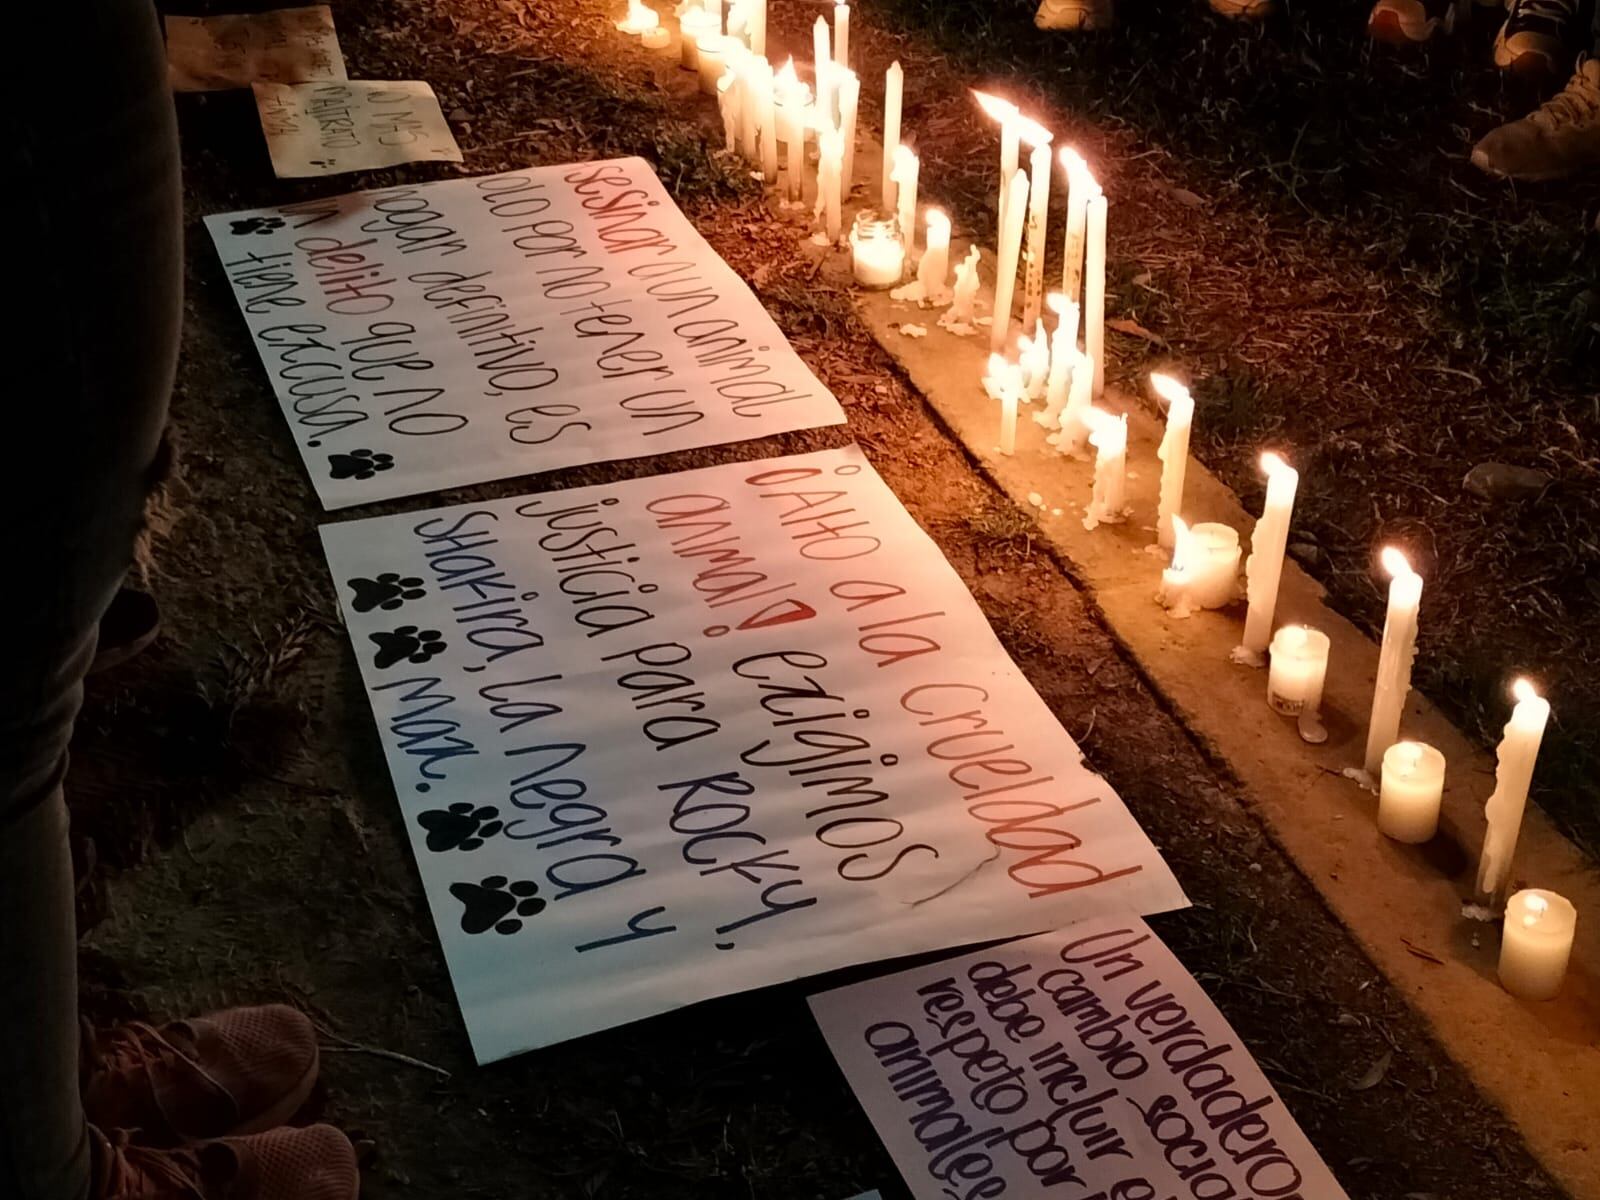 NO MÁS
MALTRATO
sesinar a un animal
olo por no tener un
hogar definitivo, es
un delito que no
tiene excusa.
¡Alto a la crueldad
animal! exigimos
justicia para Rocky,
Shakira, la negra y
Maza.
Un verdadero
cambio socia
debe incluir e
respeto por
animales